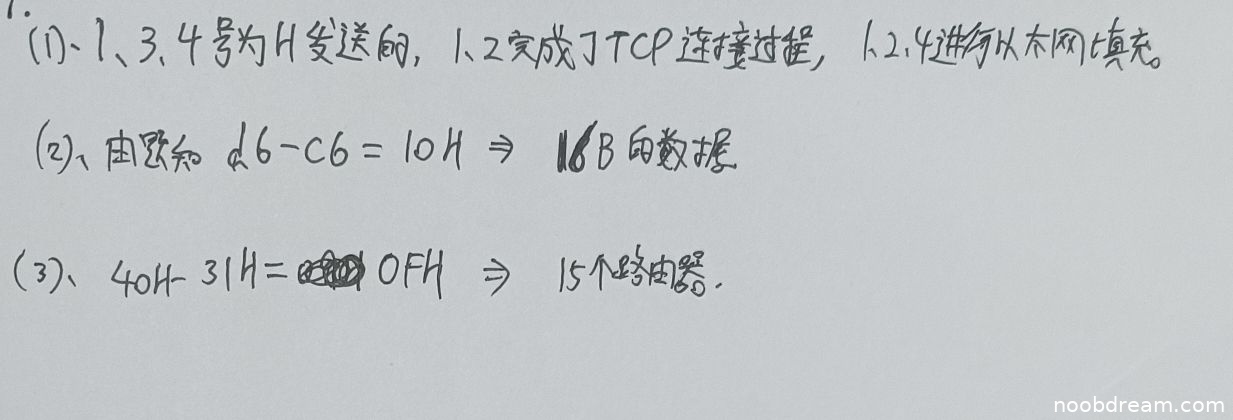 1.
(1)、1、3、4号为H发送的, 1、2完成了TCP连接过程, 1、2、4进行以太网填充。
(2)、由题知 d6-C6=10H ⇒ 16B的数据
(3)、40H-31H= OFH ⇒ 15个路由器.
noobdream.com